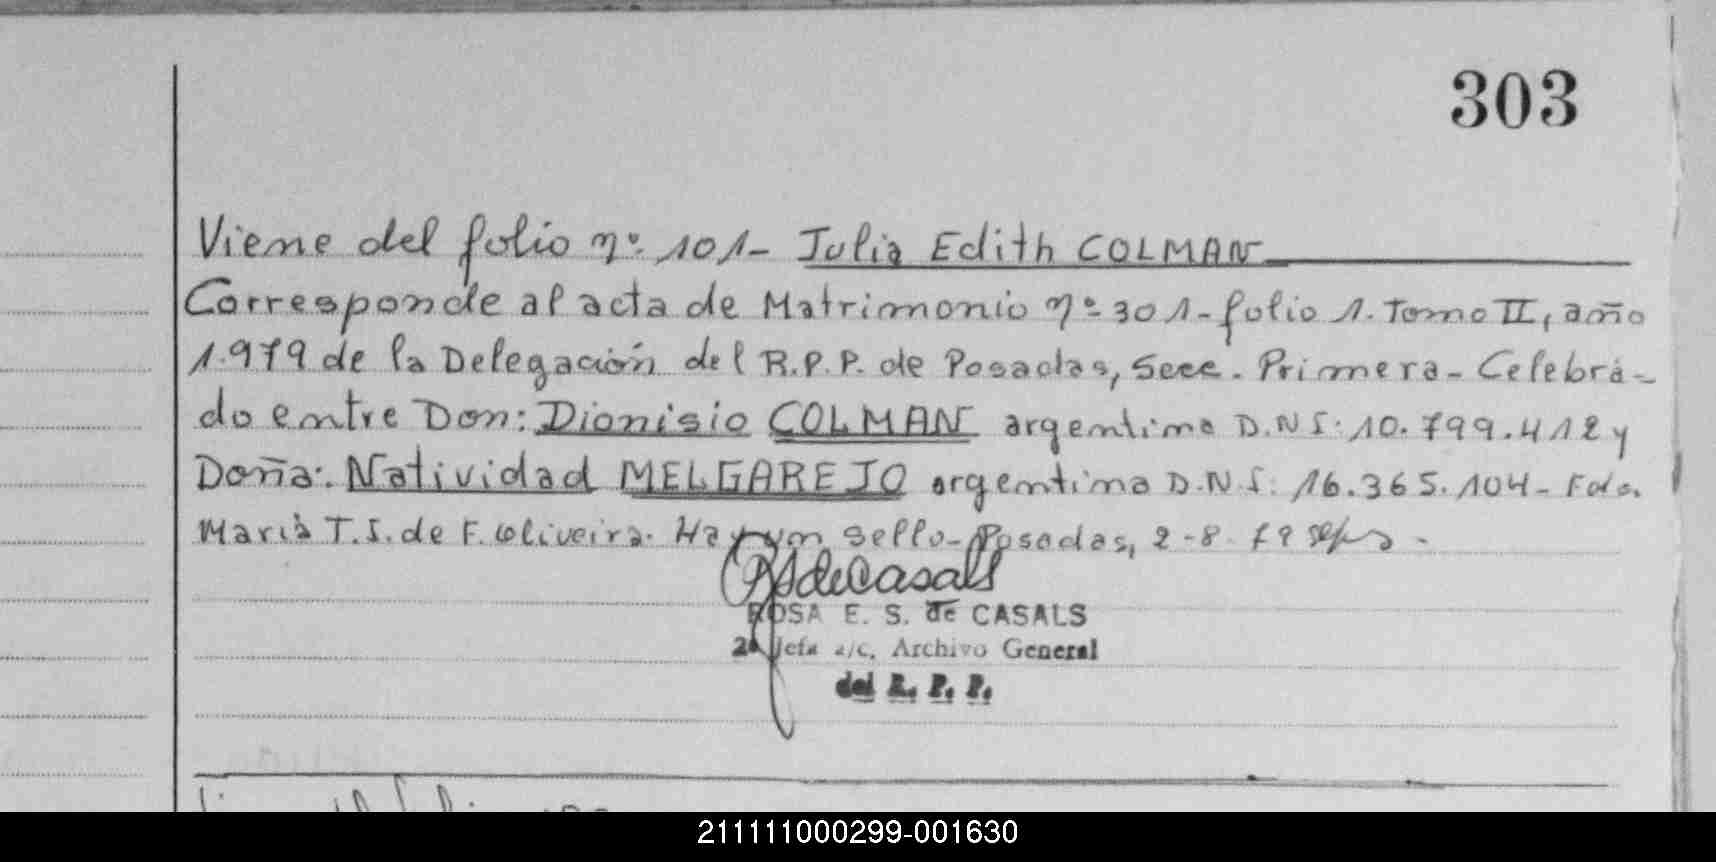 303
Viene del folio nº 101- Julia Edith COLMAN
Corresponde al acta de Matrimonio nº 301- folio 1. Tomo II, año
1.979 de la Delegación del R.P.P. de Posadas, Secc. Primera- Celebra-
do entre Don: Dionisio COLMAN argentino D.N.I: 10.799.412 y
Doña: Natividad MELGAREJO argentina D.N.I: 16.365.104- Fdo.
Maria T.S. de F. Oliveira. Hay un sello- Posadas, 2-8-79
RSdeCasals
ROSA E. S. de CASALS
2ª Jefa a/c, Archivo General
del R. P. P.
211111000299-001630